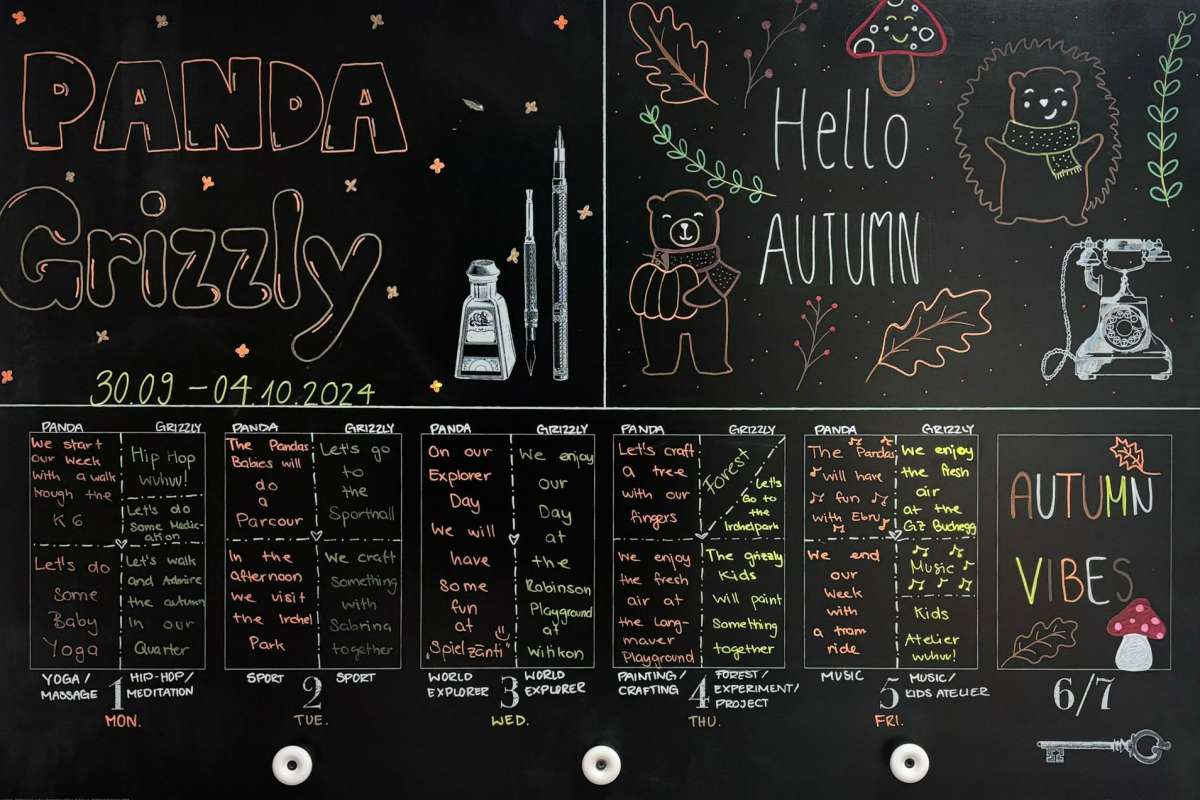 PANDA
Grizzly
30.09 – 04.10.2024
Hello
AUTUMN
PANDA
We start
our week
with a walk
trough the
K6
Let's do
Some
Baby
Yoga
GRIZZLY
Hip Hop
wuhu!
Let's do
some Medic-
ation
Let's walk
and Admire
the autumn
In our
Quarter
YOGA /
MASSAGE
1
HIP-HOP/
MEDITATION
MON.
PANDA
The Pandas
Babies will
do
a
Parcour
In the
afternoon
we visit
the Irchel
Park
GRIZZLY
Let's go
to
the
Sporthall
We craft
something
with
Sabrina
together
SPORT
2
SPORT
TUE.
PANDA
On our
Explorer
Day
We will
have
some
fun
at
„Spielzänti"
GRIZZLY
We enjoy
our
Day
at
the
Robinson
Playground
at
Witikon
WORLD
EXPLORER
3
WORLD
EXPLORER
WED.
PANDA
Let's craft
a tree
with our
fingers
We enjoy
the fresh
air at
the Lang-
maver
Playground
GRIZZLY
Forest
Let's
Go to
the
Irchelpark
The grizzly
Kids
will paint
Something
together
PAINTING/
CRAFTING
4
FOREST/
EXPERIMENT/
PROJECT
THU.
PANDA
The Pandas
will have
fun
with Ebru
We end
our
week
with
a tram
ride
GRIZZLY
We enjoy
the fresh
air
at the
GZ Buchegg
Music
Kids
Atelier
wuhu!
MUSIC
5
MUSIC/
KIDS ATELIER
FRI.
AUTUMN
VIBES
6/7